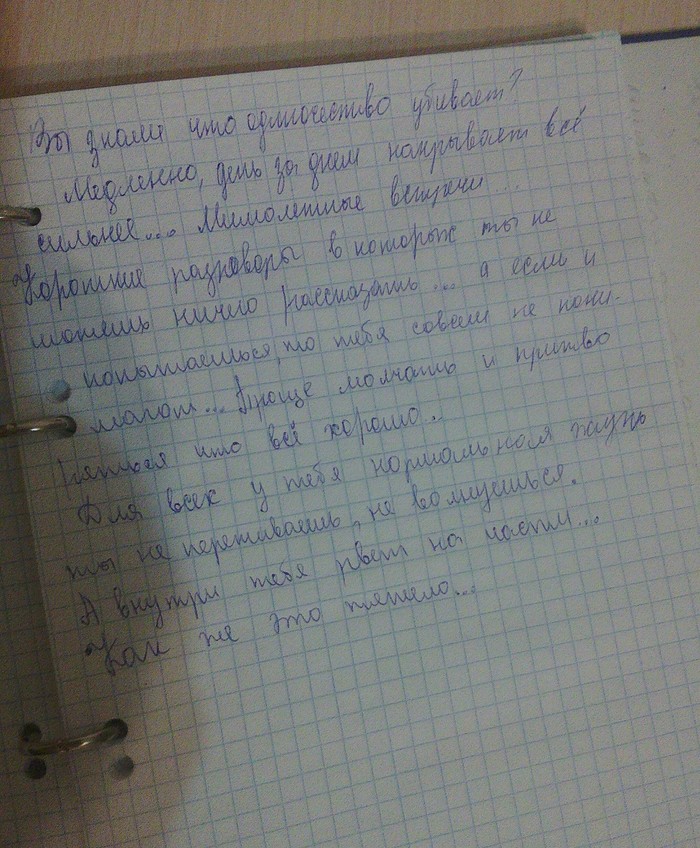 Вы знали что одиночество убивает?
Медленно, день за днем накрывает всё
сильнее... Мимолетные встречи...
Короткие разговоры в которых ты не
можешь ничего рассказать... а если и
попытаешься, то тебя совсем не пони-
мают... Проще молчать и притво
ряться что всё хорошо.
Для всех у тебя нормальная жизнь
ты не переживаешь, не волнуешься.
А внутри тебя рвет на части...
Как же это тяжело...